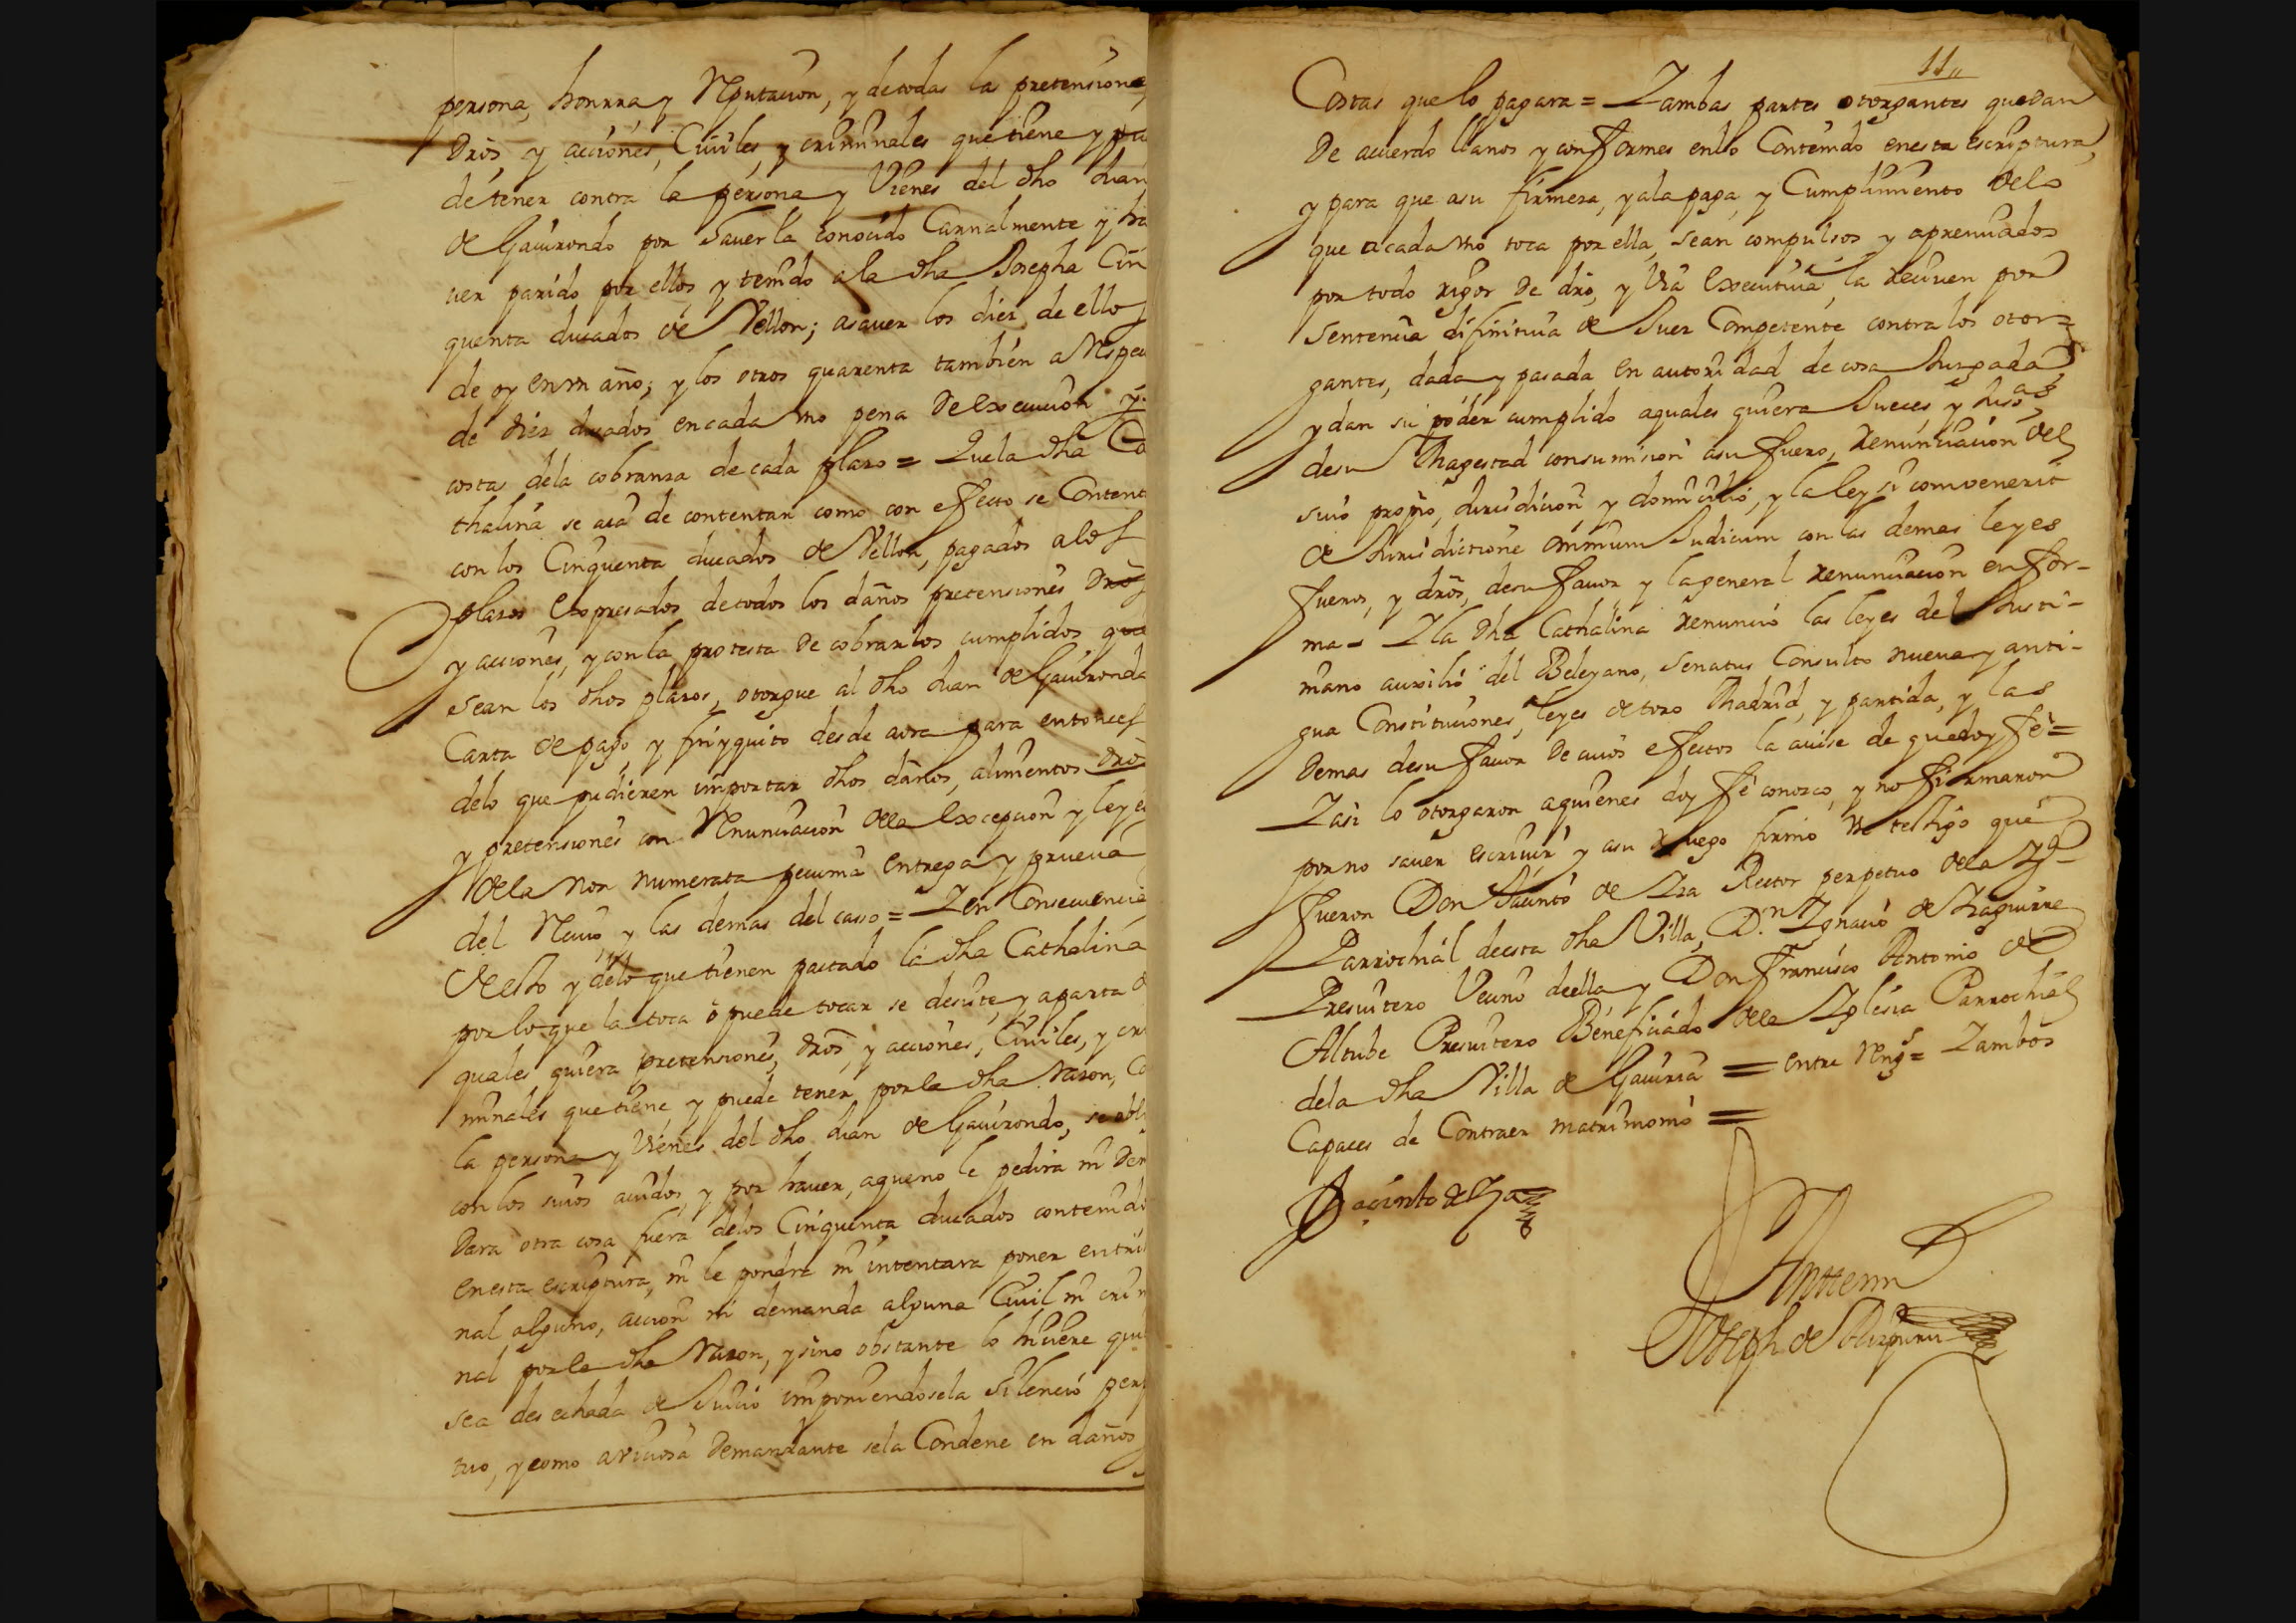 persona, honrra y Reputacion, y de todas la pretensiones
dros y acciones, Ciuiles, y criminales que tiene y pue
de tener contra la persona y Vienes del dho Juan
de Gauirondo por hauerla conocido Carnalmente y ha
uer parido por ellos, y temdo a la dha Josepha Cin
quenta ducados de Vellon; asauer los diez de ellos
de oy en vn año; y los otros quarenta tambien a Respeu
de diez ducados en cada vno pena de execucion y
costas dela cobranza de cada plazo = Quela dha Ca
thalina se aia de contentar como con effecto se Content
con los Cinquenta ducados de Vellon, pagados a los
plazos Expresados de todos los daños pretensiones dros
y acciones, y con la protesta de cobrarlos cumplidos que
sean los dhos plazos, otorgue al dho Juan de Gauirondo
Carta de pago, y finyquito desde aora para entonces
delo que pudieren importar dhos daños, alimentos dros
y pretensiones con Renunciacion dela Excepcion y leyes
dela non numerata pecunia entrega y prueua
del Reciuo, y las demas del casso = Y en Consecuencia
de esto y delo que tienen pactado la dha Cathalina
por lo que la toca o puede tocar se desiste, y aparta d
quales quiera pretensiones, dros, y acciones, Ciuiles, y cri
minales que tiene y puede tener por la dha razon, Co
la persona y Vienes del dho Juan de Gauirondo, se obli
con los suios auidos, y por hauer, aque no le pedira ni dem
dara otra cosa fuera delos Cinquenta ducados contenido
en esta escriptura, ni le pondra ni intentara poner en tribu
nal alguno, accion ni demanda alguna Ciuil ni crimi
nal por la dha razon, y sino obstante lo hiciere qui
sea desechada de Juicio imponiendosela silencio perp
tuo, y como aviciosa demandante sela Condene en daños
11
Costas que lo pagara = Y ambas partes otorgantes quedan
de acuerdo llanos y conformes en lo Contenido en esta escriptura,
y para que asu firmeza, y ala paga, y Cumplimiento delo
que acada vno toca por ella, sean compulsos y apremiados
por todo rigor de dro, y via executiua, la reciuen por
Sentencia difinitiua de Juez Competente contra los otor=
gantes, dada y pasada en autoridad de cosa Juzgada
y dan su poder cumplido aquales quiera Jueces y Jusas
desu Magestad consumision asu fuero, renunciacion del
suio propio, Jurisdicion y domicilio, y la ley si convenerit
de Jurisdictione omnium Judicum con las demas leyes
fueros, y dros, desu fauor y la general renunciacion en for-
ma = Y la dha Cathalina renuncio las leyes del Justi-
niano auxilio del Beleyano, Senatus Consulto nueua y anti-
gua Constituciones, leyes de toro Madrid, y partida, y las
demas desu fauor de cuios effectos la auise de que doy fe =
Y asi lo otorgaron aquienes doy fe conozco, y no firmaron
por no sauer escriuir y asu ruego firmo vn testigo que
fueron Don Jacinto de Yza Rector perpetuo dela Yga
Parrochial de esta dha Villa, Dn. Ygnacio de Yzaguirre
Presuitero Vecino de ella, y Don Francisco Antonio de
Altube Presuitero Beneficiado dela Yglesia Parrochial
dela dha Villa de Gauiria = entre Rengs = Y ambos
Capaces de Contraer matrimonio =
Jacinto de Yza
Antemi
Joseph de Aizpuru